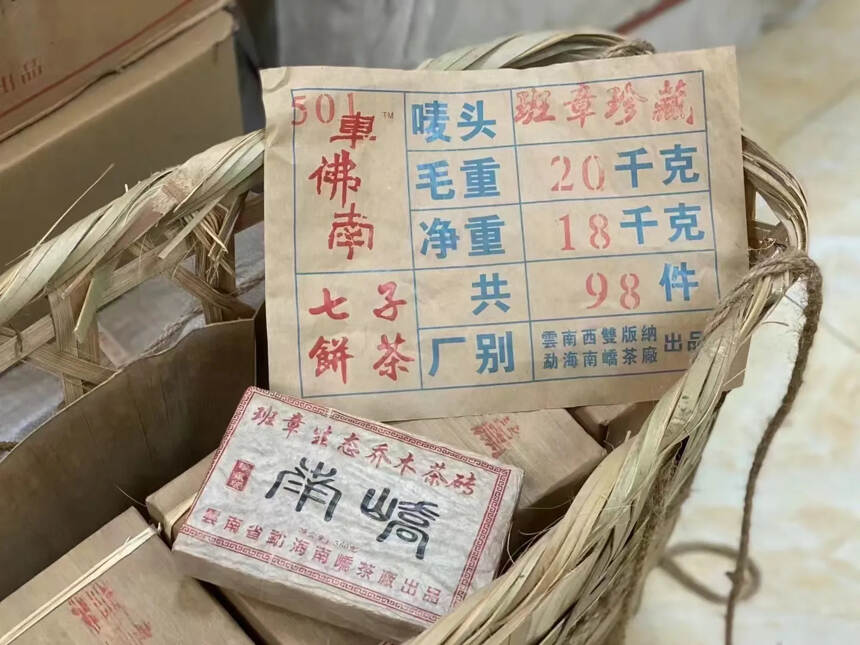 出品
501
車佛南
TM
唛头 班章珍藏
毛重 20千克
净重 18千克
七子
餅茶
共 98 件
厂别 雲南西雙版纳
勐海南嶠茶廠 出品
班章生态乔木茶砖
南嶠
雲南省勐海南嶠茶廠出品